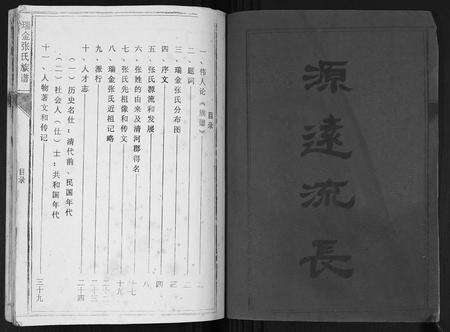 源遠流長
目录
一、伟人论《族谱》
二、题词
三、瑞金张氏分布图
四、序文
五、张氏源流和发展
六、张姓的由来及清河郡得名
七、张氏先祖像和传文
八、瑞金张氏近祖记略
九、派行
十、人才志
（一）历史名仕：清代前、民国年代
（二）社会人（仕）士：共和国年代
十一、人物著文和传记
三十九
瑞金张氏族谱
目录